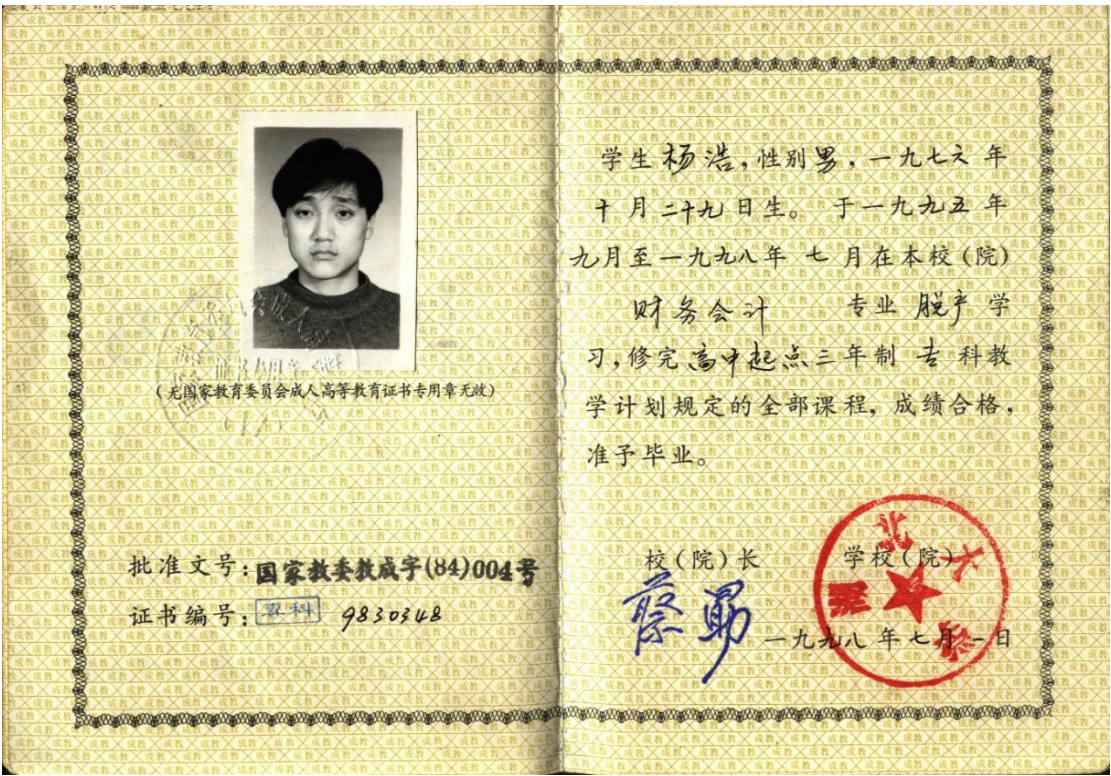 (无国家教育委员会成人高等教育证书专用章无效)
批准文号:国家教委教成字(84)004号
证书编号: 9830348
学生杨浩,性别男,一九七六年
十月二十九日生。于一九九五年
九月至一九九八年七月在本校(院)
财务会计 专业 脱产 学
习,修完高中起点三年制 专 科教
学计划规定的全部课程,成绩合格,
准予毕业。
校(院)长 学校(院)
蔡勖 一九九八年七月一日